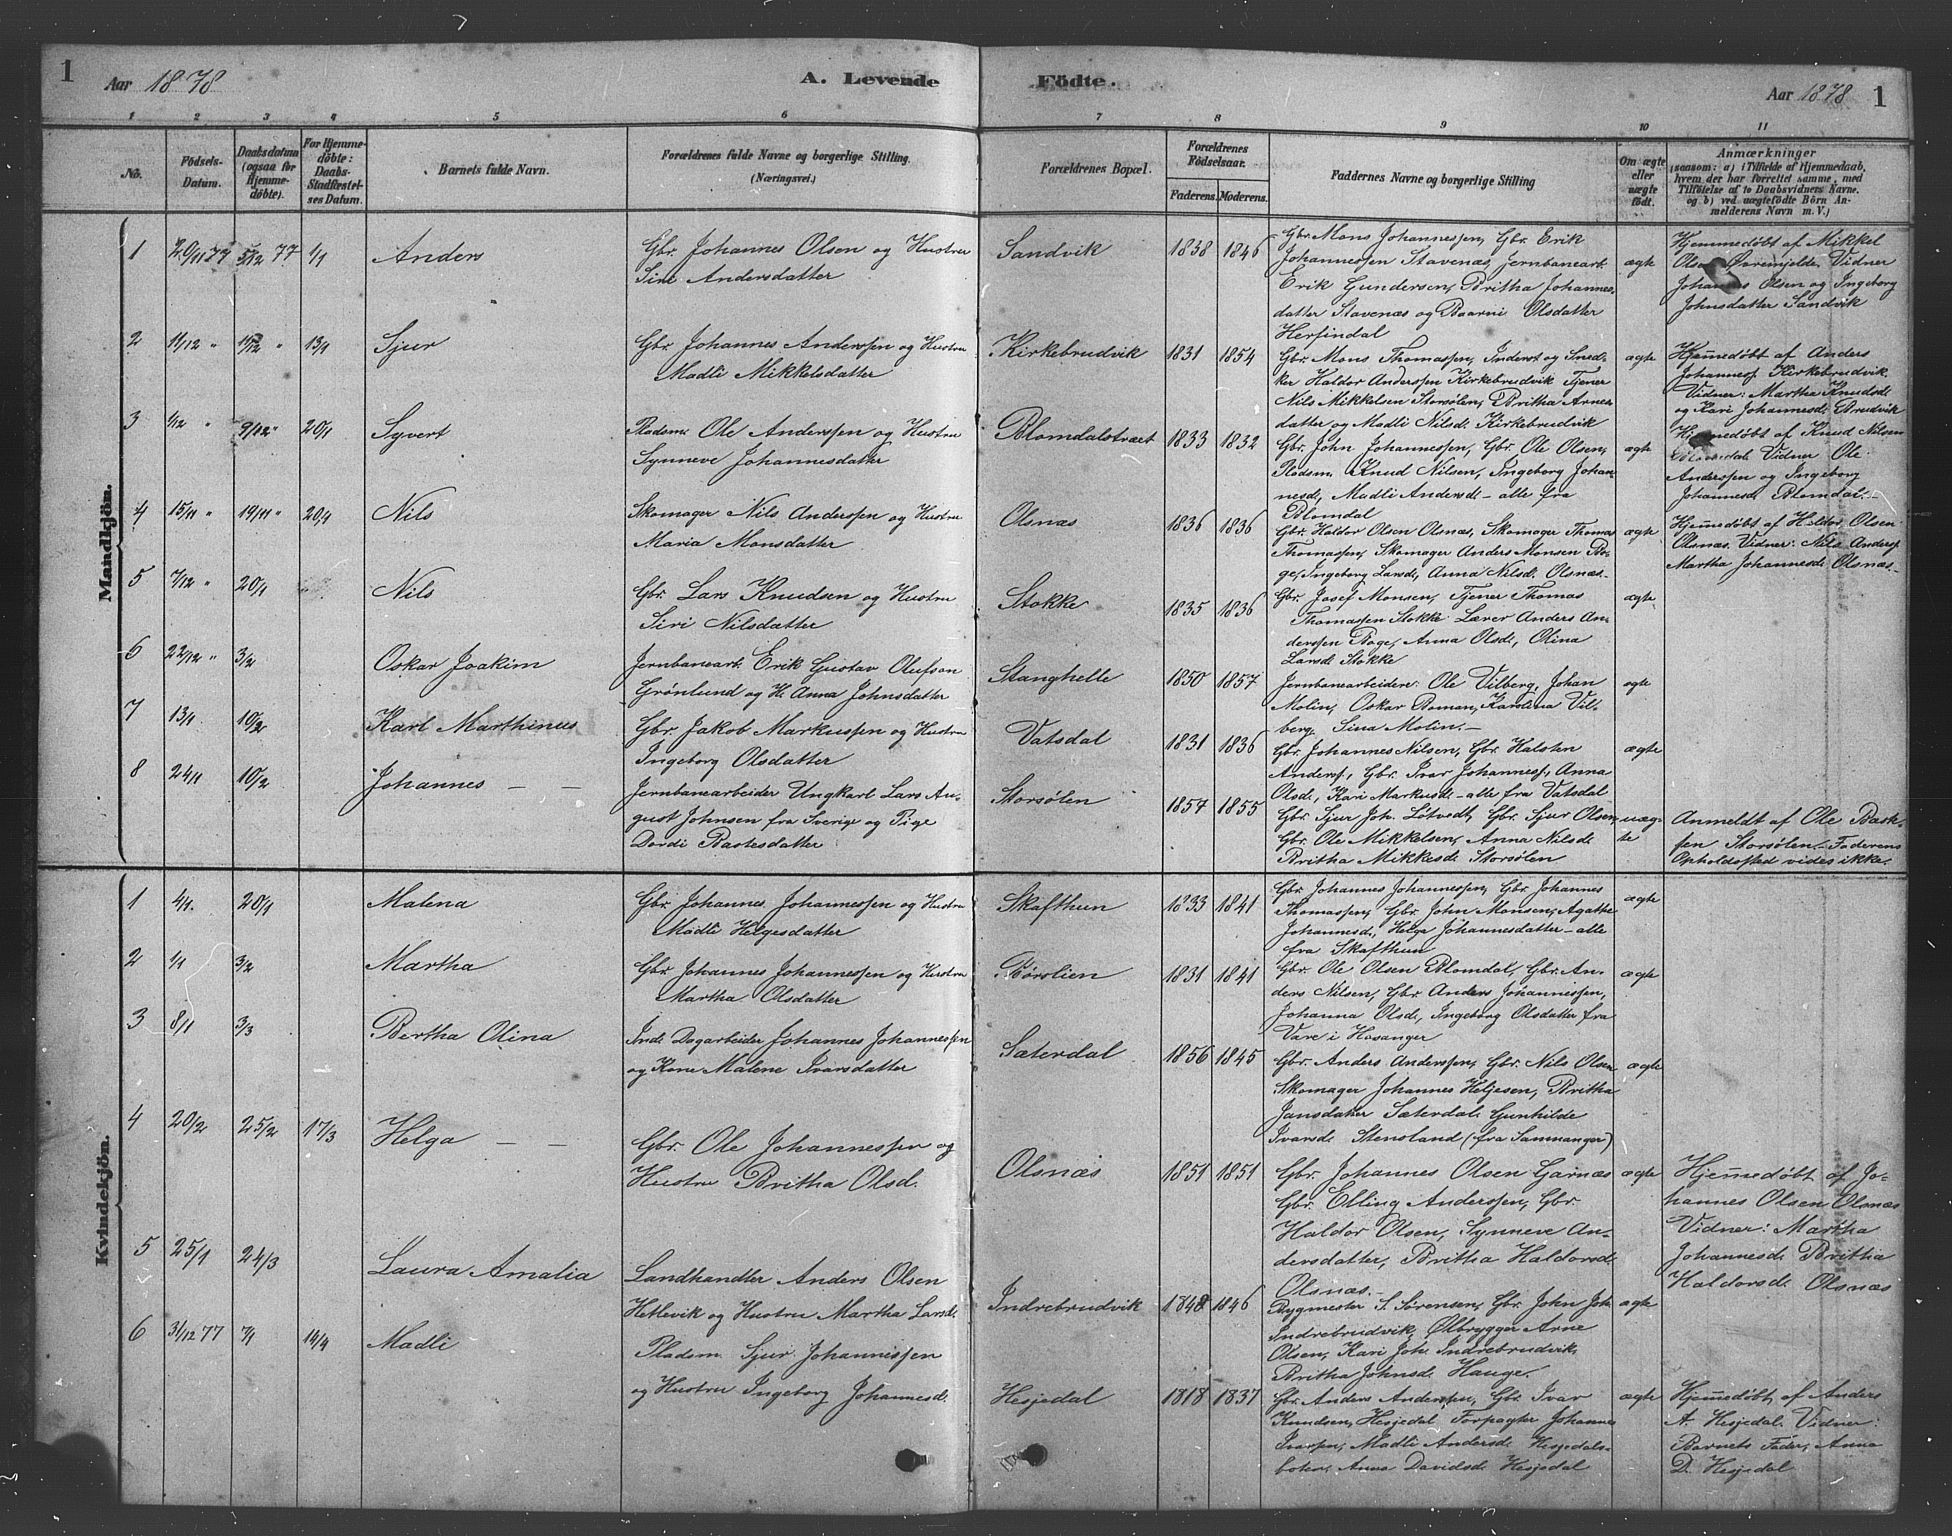 1 Aar 1878 A. Levende Födte. Aar 1878 1
1 2 3 4 5 6 7 8 9 10 11
No.
Födsels-
Datum.
Daabsdatum
(ogsaa for
Hjemme-
döbte).
For Hjemme-
döbte:
Daabs-
Stadfæstel-
ses Datum.
Barnets fulde Navn.
Forældrenes fulde Navne og borgerlige Stilling.
(Næringsvei.)
Forældrenes Bopæl.
Forældrenes
Födselsaar.
Faderens. Moderens.
Faddernes Navne og borgerlige Stilling
Om ægte
eller
uægte
födt.
Anmærkninger
(saasom: a) i Tilfælde af Hjemmedaab,
hvem der har forrettet samme, med
Tilföielse af to Daabsvidners Navne,
og b) ved uægtefödte Börn An-
melderens Navn m. V.)
Mandkjön.
1 20/11 77 5/12 77 1/1 Anders
Gbr. Johannes Olsen og Hustru
Siri Andersdatter
Sandvik 1838 1846
Gbr. Mons Johannessen, Gbr. Erik
Johannessen Stavenæs, Jernbanearb.
Erik Gundersen, Britha Johannes-
datter Stavenæs og Baarni Olsdatter
Herfindal
ægte
Hjemmedøbt af Mikkel
Olsen Øvremjelde. Vidner
Johannes Olsen og Ingeborg
Johnsdatter Sandvik
2 11/12 " 14/12 " 13/1 Sjur
Gbr. Johannes Anderssen og Hustru
Madli Mikkelsdatter
Kirkebrudvik 1831 1854
Gbr. Mons Thomassen, Inderst og Sned-
ker Haldor Anderssen Kirkebrudvik Tjener
Nils Mikkelsen Storsølen, Britha Arne-
datter og Madli Nilsd. Kirkebrudvik
ægte
Hjemmedøbt af Anders
Johanness. Kirkebrudvik.
Vidner: Martha Knudsd.
og Kari Johannesd. Brudvik
3 1/12 " 9/12 " 20/1 Syvert
Pladsm. Ole Anderssen og Hustru
Synneve Johannesdatter
Blomdalstræet 1833 1832
Gbr. John Johannessen, Gbr. Ole Olsen,
Pladsm. Knud Nilsen, Ingeborg Johan-
nesd., Madli Andersd. – alle fra
Blomdal
ægte
Hjemmedøbt af Knud Nilsen
Blomdal. Vidner Ole
Anderssen og Ingeborg
Johannesd. Blomdal. –
4 15/11 " 19/11 " 20/1 Nils
Skomager Nils Anderssen og Hustru
Maria Monsdatter
Olsnæs 1836 1836
Gbr. Haldor Olsen Olsnæs, Skomager Thomas
Thomassen, Skomager Anders Monsen Bo-
ge, Ingeborg Larsd., Anna Nilsd. Olsnæs.
ægte
Hjemmedøbt af Haldor Olsen
Olsnæs. Vidner: Nils Anderss.
Martha Johannesd. Olsnæs. –
5 7/12 " 20/1 Nils
Gbr. Lars Knudsen og Hustru
Siri Nilsdatter
Stokke 1835 1836
Gbr. Josef Monsen, Tjener Thomas
Thomassen Stokke Lærer Anders An-
derssen Boge, Anna Olsd., Olina
Larsd. Stokke
ægte
6 22/12 " 3/2 Oskar Joakim
Jernbanearb. Erik Gustav Olufson
Grönlund og H. Anna Johnsdatter
Stanghelle 1850 1857
Jernbanearbeidere: Ole Vilberg, Johan
Molin, Oskar Boman, Karolina Vil-
berg, Sina Molin. –
ægte
7 13/1 10/2 Karl Marthinus
Gbr. Jakob Markussen og Hustru
Ingeborg Olsdatter
Vatsdal 1831 1836
Gbr. Johannes Nilsen, Gbr. Halsten
Anderss., Gbr. Ivar Johanness., Anna
Olsd., Kari Markusd. – alle fra Vatsdal
ægte
8 24/1 10/2 Johannes – –
Jernbanearbeider Ungkarl Lars Au-
gust Johnsen fra Sverige og Pige
Dordi Baatesdatter
Storsølen 1857 1855
Gbr. Sjur Joh. Lötvedt, Gbr. Sjur Olsen,
Gbr. Ole Mikkelsen, Anna Nilsd.
Britha Mikkelsd. Storsølen
uæg-
te
Anmeldt af Ole
Storsølen. – Faderens
Opholdssted vides ikke.
Kvindekjön.
1 4/1. 20/1 Malena
Gbr. Johannes Johannessen og Hustru
Madli Helgesdatter
Skafthun 1833 1841
Gbr. Johannes Johannessen, Gbr. Johannes
Thomassen, Gbr. John Monsen, Agathe
Johannesd., Helga Johannesdatter – alle
fra Skafthun
ægte
2 1/1 3/2 Martha
Gbr. Johannes Johannessen og Hustru
Martha Olsdatter
1831 1841
Gbr. Ole Olsen Blomdal, Gbr. An-
ders Nilsen, Gbr. Anders Johannessen,
Johanna Olsd., Ingeborg Olsdatter fra
Vare i Hosanger
ægte
3 8/1 3/3 Bertha Olina
Ind. Dagarbeider Johannes Johannessen
og Kone Malene Ivarsdatter
Sæterdal 1856 1845
Gbr. Anders Anderssen, Gbr. Nils Olsen
Skomager Johannes Heljesen, Britha
Jansdatter Sæterdal. Gunhilde
Ivarsd. Stensland (fra Samnanger)
ægte
4 20/2 25/2 17/3 Helga – –
Gbr. Ole Johannessen og
Hustru Britha Olsd.
Olsnæs 1851 1851
Gbr. Johannes Olsen Garnæs
Gbr. Elling Anderssen, Gbr.
Haldor Olsen, Synneve An-
dersdatter, Britha Haldorsd.
Olsnæs.
ægte
Hjemmedøbt af Jo-
hannes Olsen Olsnæs
Vidner: Martha
Johannesd. Britha
Haldorsd. Olsnæs
5 25/1 24/3 Laura Amalia
Landhandler Anders Olsen
Hetlevik og Hustru Martha Larsd.
Indrebrudvik 1848 1846
Bygmester S. Sörensen, Gbr. John Joh.
Indrebrudvik, Ølbrygger Arne
Olsen, Kari Joh. Indrebrudvik,
Britha Johnsd. Hauge.
ægte
6 31/12 77 7/1 14/4 Madli
Pladsm. Sjur Johannessen
og Hustru Ingeborg Johannesd.
Hesjedal 1818 1837
Gbr. Anders Anderssen, Gbr. Ivar
Knudsen, Hesjedal Forpagter Johannes
Ivarsen, Madli Andersd. Hesjedals-
boten, Anna Davidsd. Hesjedal
ægte
Hjemmedøbt af Anders
A. Hesjedal. Vidner:
Barnets Fader, Anna
D. Hesjedal